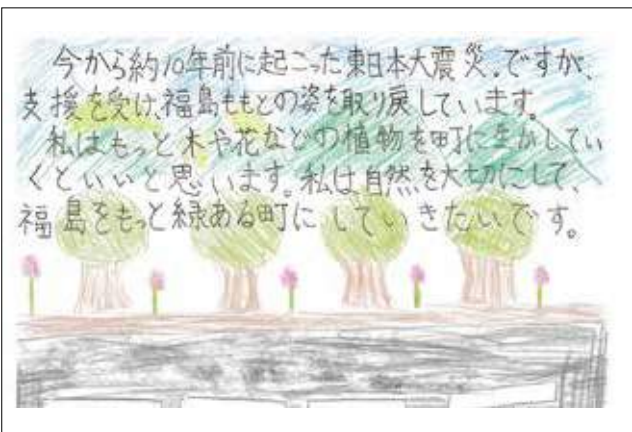 今から約10年前に起こった東日本大震災。ですが、
支援を受け、福島ももとの姿を取り戻しています。
私はもっと木や花などの植物を町に生かしてい
くといいと思います。私は自然を大切にして、
福島をもっと緑ある町にしていきたいです。